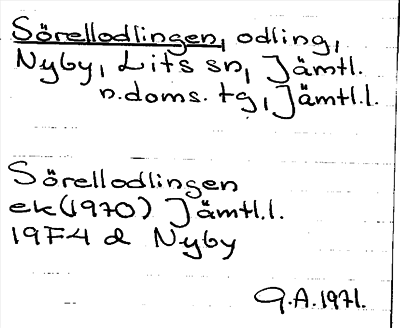 Sörellodlingen, odling,
Nyby, Lits sn, Jämtl.
n.doms. tg, Jämtl.l.
Sörellodlingen
ek (1970) Jämtl.l.
19F4 d Nyby
G.A.1971.